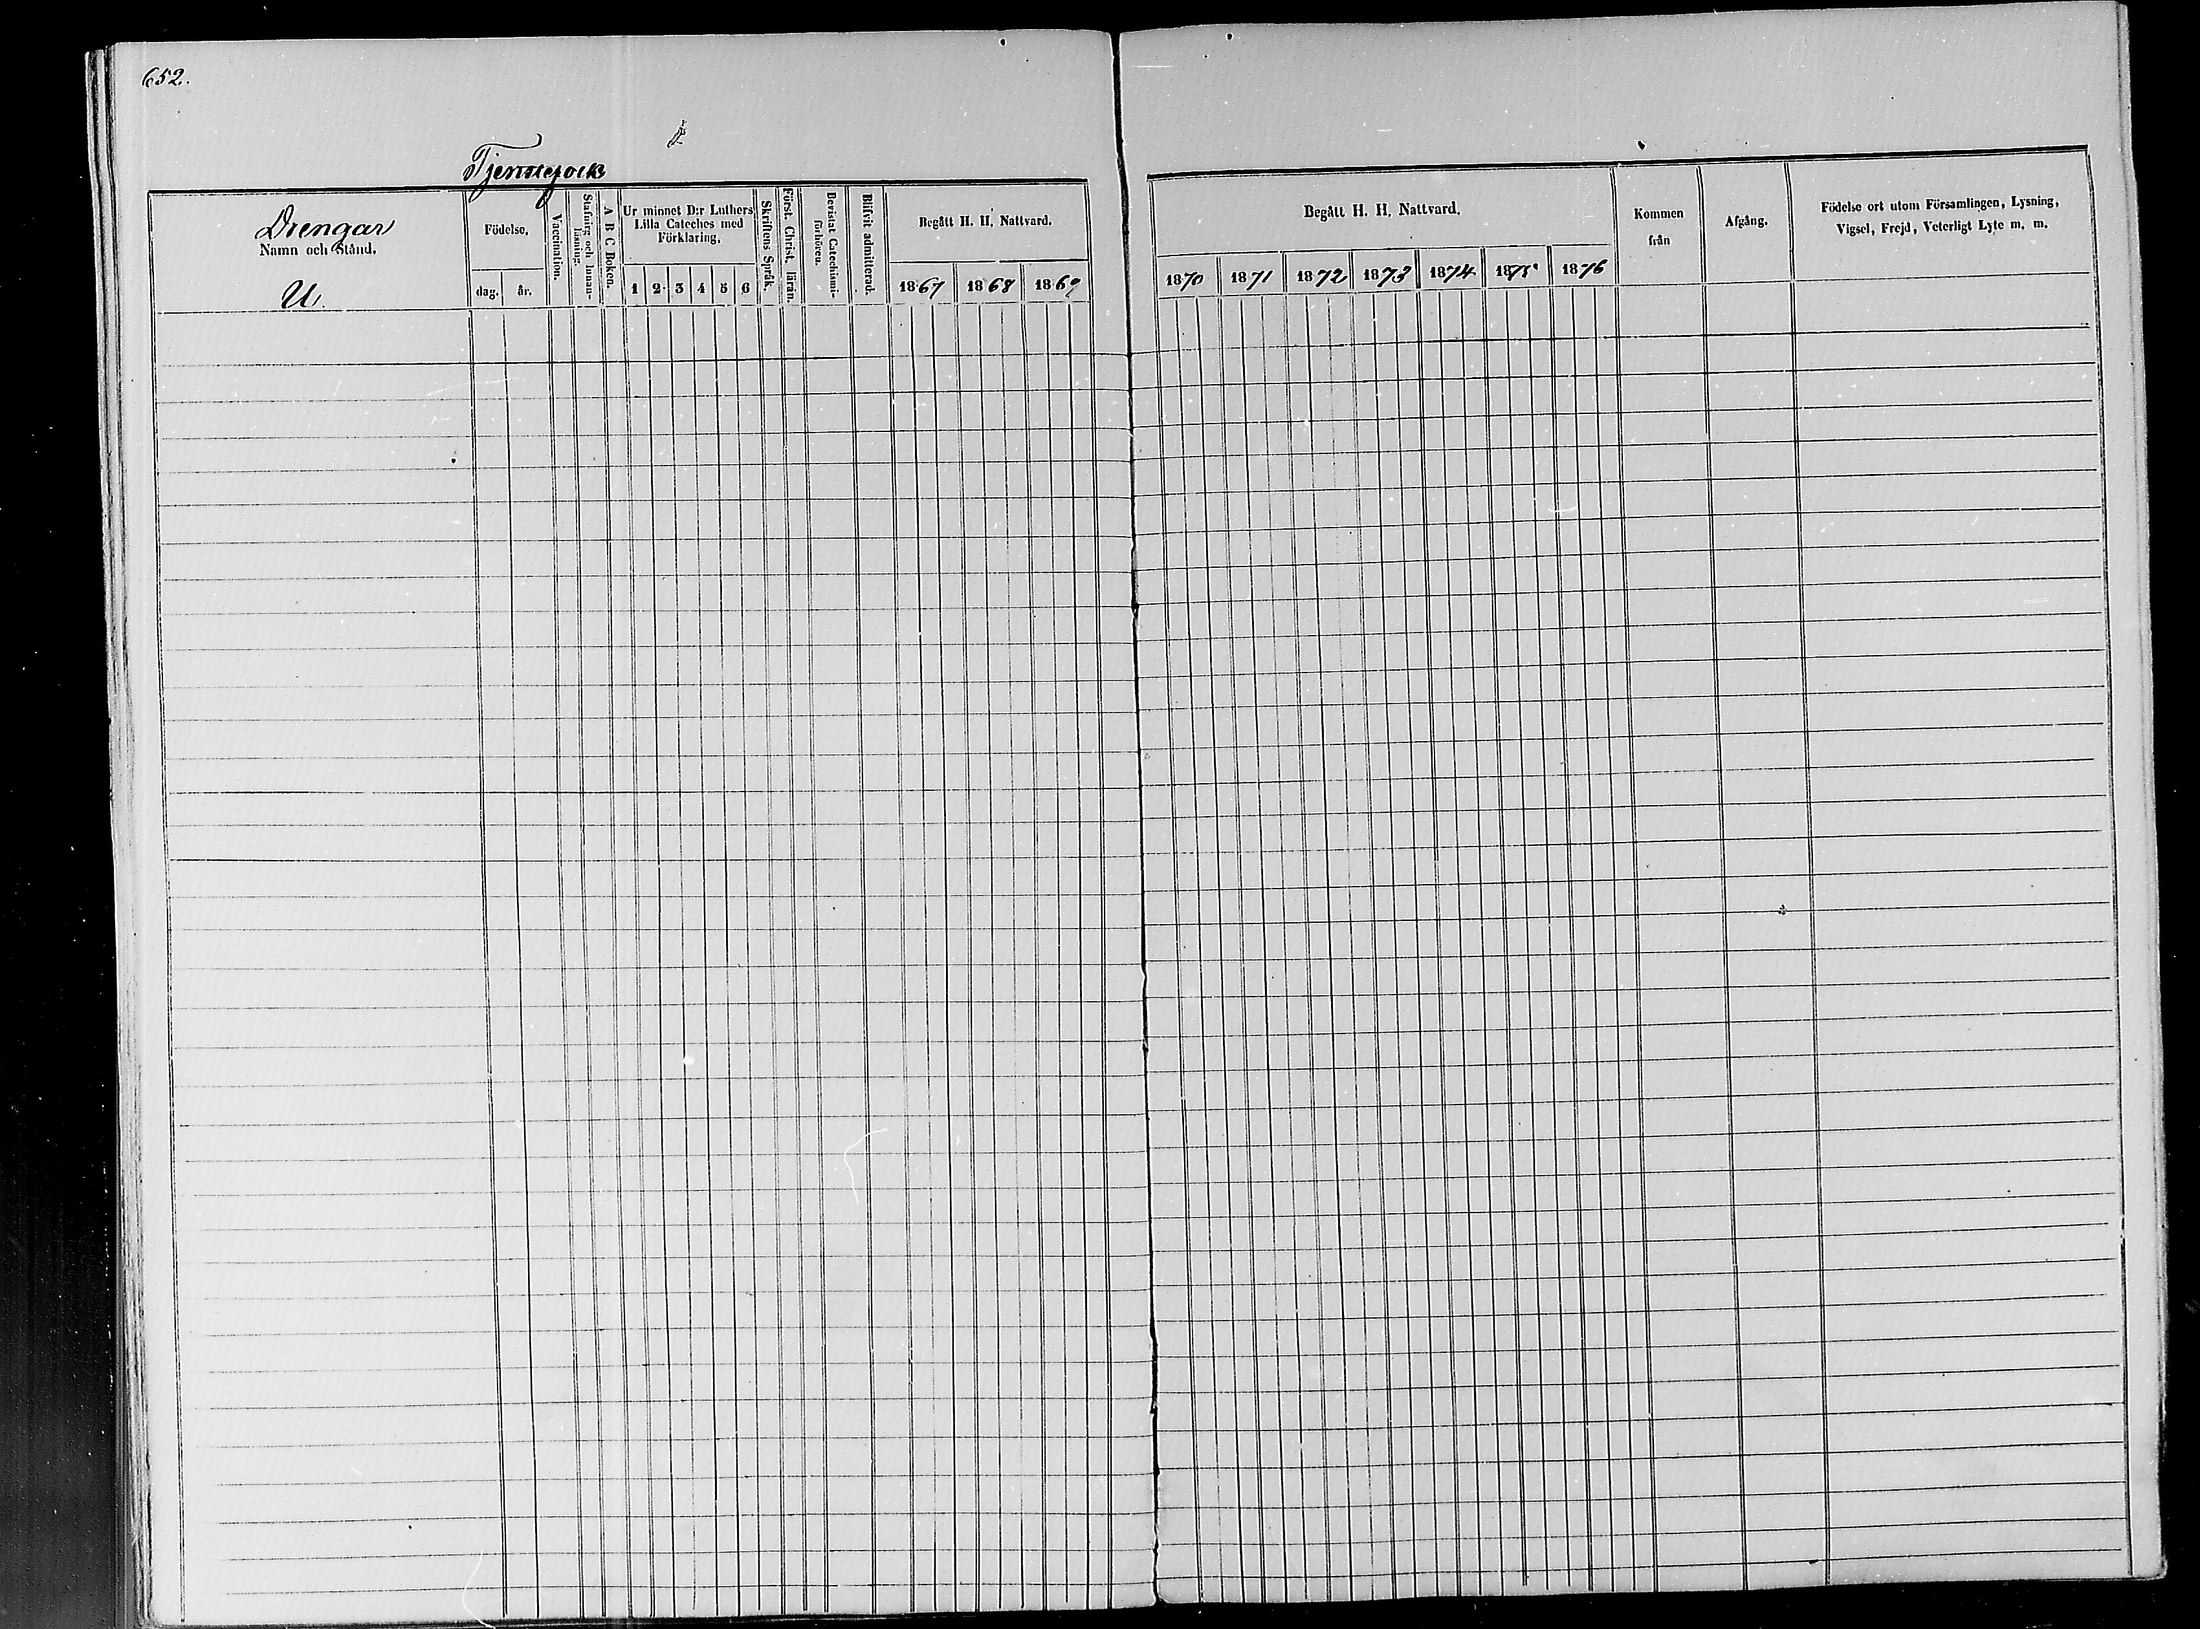 652.
Tjenstefolk
Drengar
Namn och Stånd.
U.
Födelse.
dag. år.
Vaccination.
Stafning och Innan-
läsning.
A B C Boken.
Ur minnet D:r Luthers
Lilla Cateches med
Förklaring.
1 2 3 4 5 6
Skriftens Språk.
Först. Christ. lärån.
Bevistat Catechismi-
förhören.
Blifvit admitterad.
Begått H. H. Nattvard.
1867 1868 1869
Begått H. H. Nattvard.
1870 1871 1872 1873 1874 1875 1876
Kommen
från
Afgång.
Födelse ort utom Församlingen, Lysning,
Vigsel, Frejd, Veterligt Lyte m. m.